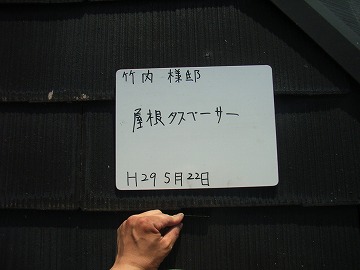 竹内 様邸
屋根タスペーサー
H29 5月22日